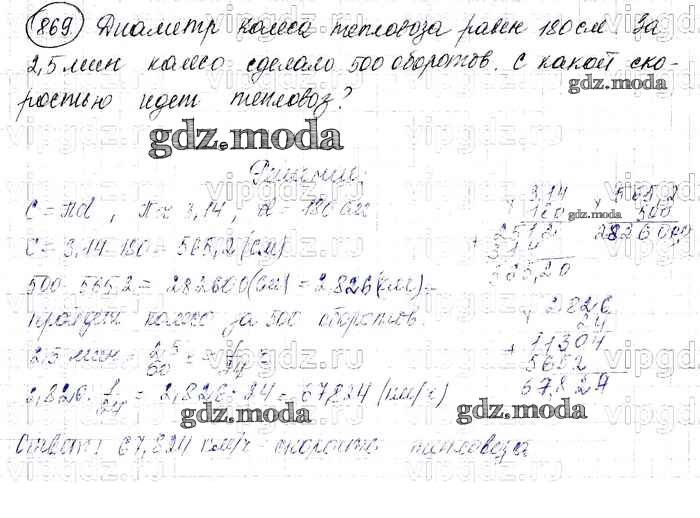 869 Диаметр колеса тепловоза равен 180 см За
2,5 мин колесо сделало 500 оборотов. С какой ско-
ростью идет тепловоз?
gdz.moda
Решение:
C = πd, π ≈ 3,14, d = 180 см
C = 3,14 · 180 = 565,2 (см)
500 · 565,2 = 282600 (см) = 2,826 (км) -
пройдет колесо за 500 оборотов.
2,5 мин = 2,5/60 = 1/24
2,826 : 1/24 = 2,826 · 24 = 67,824 (км/ч)
Ответ: 67,824 км/ч скорость тепловоза
3,14
180
2512
314
565,20
565,2
500
282600,0
2,826
24
11304
5652
67,824
gdz.moda
gdz.moda
gdz.moda
gdz.moda
vipgdz.ru